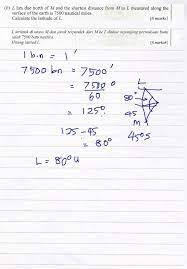 (c) L lies due north of M and the shortest distance from M to L measured along the
surface of the earth is 7500 nautical miles.
Calculate the latitude of L. [3 marks]
L terletak di utara M dan jarak terpendek dari M ke L diukur sepanjang permukaan bumi
ialah 7500 batu nautika.
Hitung latitud L. [3 markah]
1 b.n = 1'
7500 bn = 7500'
= 7500 / 60
= 125°
125 - 45
= 80°
L = 80°U
L
80°
45
M
45°S